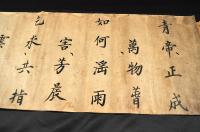 青帝正成
萬物
如何滛雨
害芳晨
乞求共指